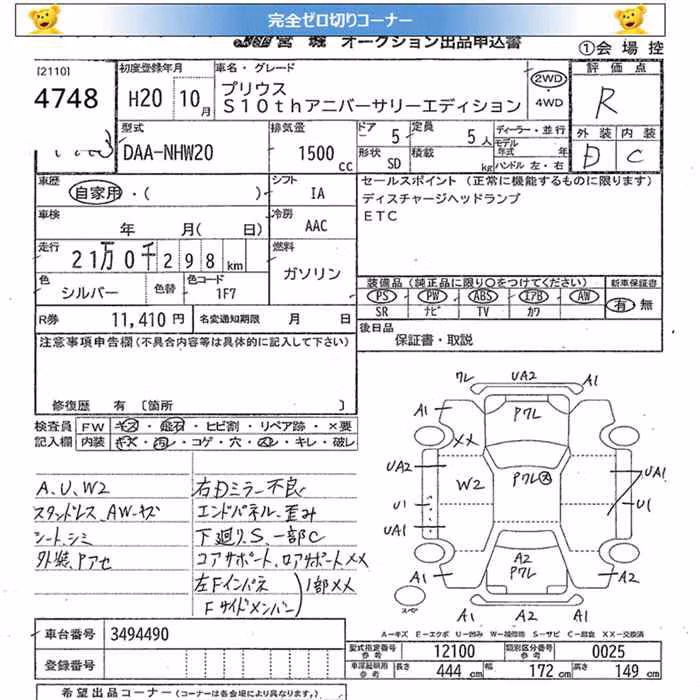 完全ゼロ切りコーナー
宮城 オークション出品申込書
①会場控
[2110]
4748
初度登録年月
H20 10月
車名・グレード
プリウス
S10thアニバーサリーエディション
2WD
・
4WD
評価点
R
外装 内装
D C
型式
DAA-NHW20
排気量
1500 cc
ドア 5
定員 5人
形状 SD
積載 kg
ディーラー・並行
モデル年式 年
ハンドル 左・右
車歴
自家用・( )
シフト
IA
車検
年 月( 日)
冷房
AAC
走行
21万0千298km
燃料
ガソリン
色
シルバー
色替
色コード
1F7
R券 11,410円
名変通知期限 月 日
セールスポイント (正常に機能するものに限ります)
ディスチャージヘッドランプ
ETC
装備品(純正品に限り○をつけてください)
PS PW ABS エアB AW
SR ナビ TV カワ
新車保証書
有 無
後日品
保証書・取説
注意事項申告欄(不具合内容等は具体的に記入して下さい)
修復歴 有 [箇所 ]
検査員 FW キズ・飛石・ヒビ割・リペア跡・×要
記入欄 内装 キズ・汚レ・コゲ・穴・スレ・キレ・破レ
A.U.W2
スタッドレス、AWキズ
シート、シミ
外装、Pアセ
右Dミラー不良
エンドパネル歪み
下廻りS、一部C
コアサポート、ロアサポートXX
左Fインパネ
Fサイドメンバー
1部XX
ワレ UA2 A1
A1 PワレA1
XX
UA2 W2 Pワレ UA1
U1 U1
UA1
A2
Pワレ
A1 A2
スペヤ
A1 A2 A1
A-キズ E-エクボ U-凹み W-補修跡 S-サビ C-腐食 XX-交換済
車台番号 3494490
登録番号
型式指定番号 参考 12100
類別区分番号 参考 0025
車庫証明用 参考 長さ 444 cm 幅 172 cm 高さ 149 cm
希望出品コーナー(コーナーは各会場により異なります。)